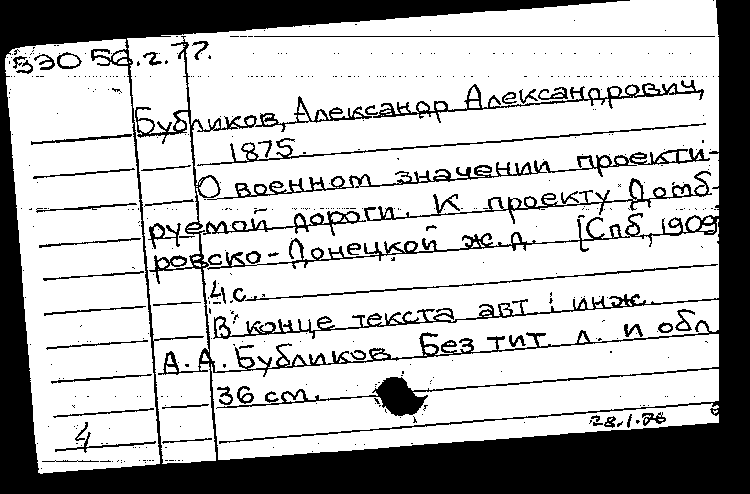 330 56.г.77.
Бубликов, Александр Александрович,
1875.
О военном значении проекти-
руемой дороги. К проекту Домб-
ровско-Донецкой ж.д. [Спб., 1909
4 с.
В конце текста авт: инж.
А.А. Бубликов. Без тит. л. и обл.
36 см.
28.1.76
4